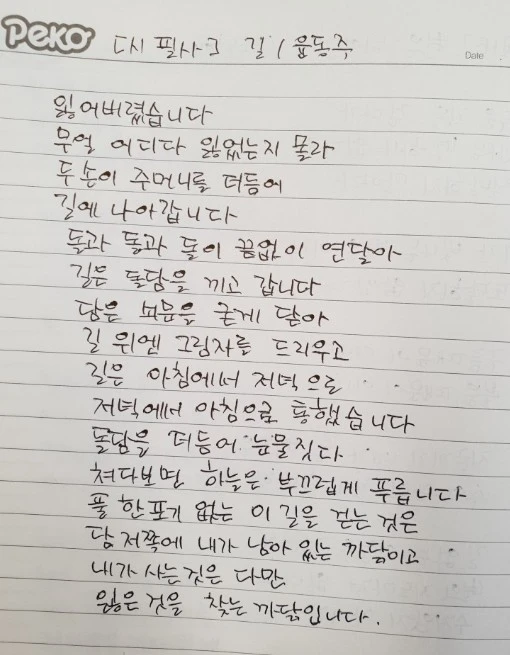 Peko
다시 필사ㅋ 길 / 윤동주
Date
잃어버렸습니다
무얼 어디다 잃었는지 몰라
두 손이 주머니를 더듬어
길에 나아갑니다
돌과 돌과 돌이 끝없이 연달아
길은 돌담을 끼고 갑니다
담은 쇠문을 굳게 닫아
길 위엔 그림자를 드리우고
길은 아침에서 저녁으로
저녁에서 아침으로 통했습니다
돌담을 더듬어 눈물짓다
쳐다보면 하늘은 부끄럽게 푸릅니다
풀 한포기 없는 이 길을 걷는 것은
담 저쪽에 내가 남아 있는 까닭이고
내가 사는 것은 다만
잃은 것을 찾는 까닭입니다.